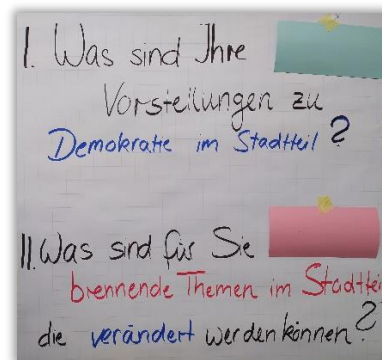 I. Was sind Ihre
Vorstellungen zu
Demokratie im Stadtteil?
II. Was sind für Sie
brennende Themen im Stadtteil
die verändert werden können?